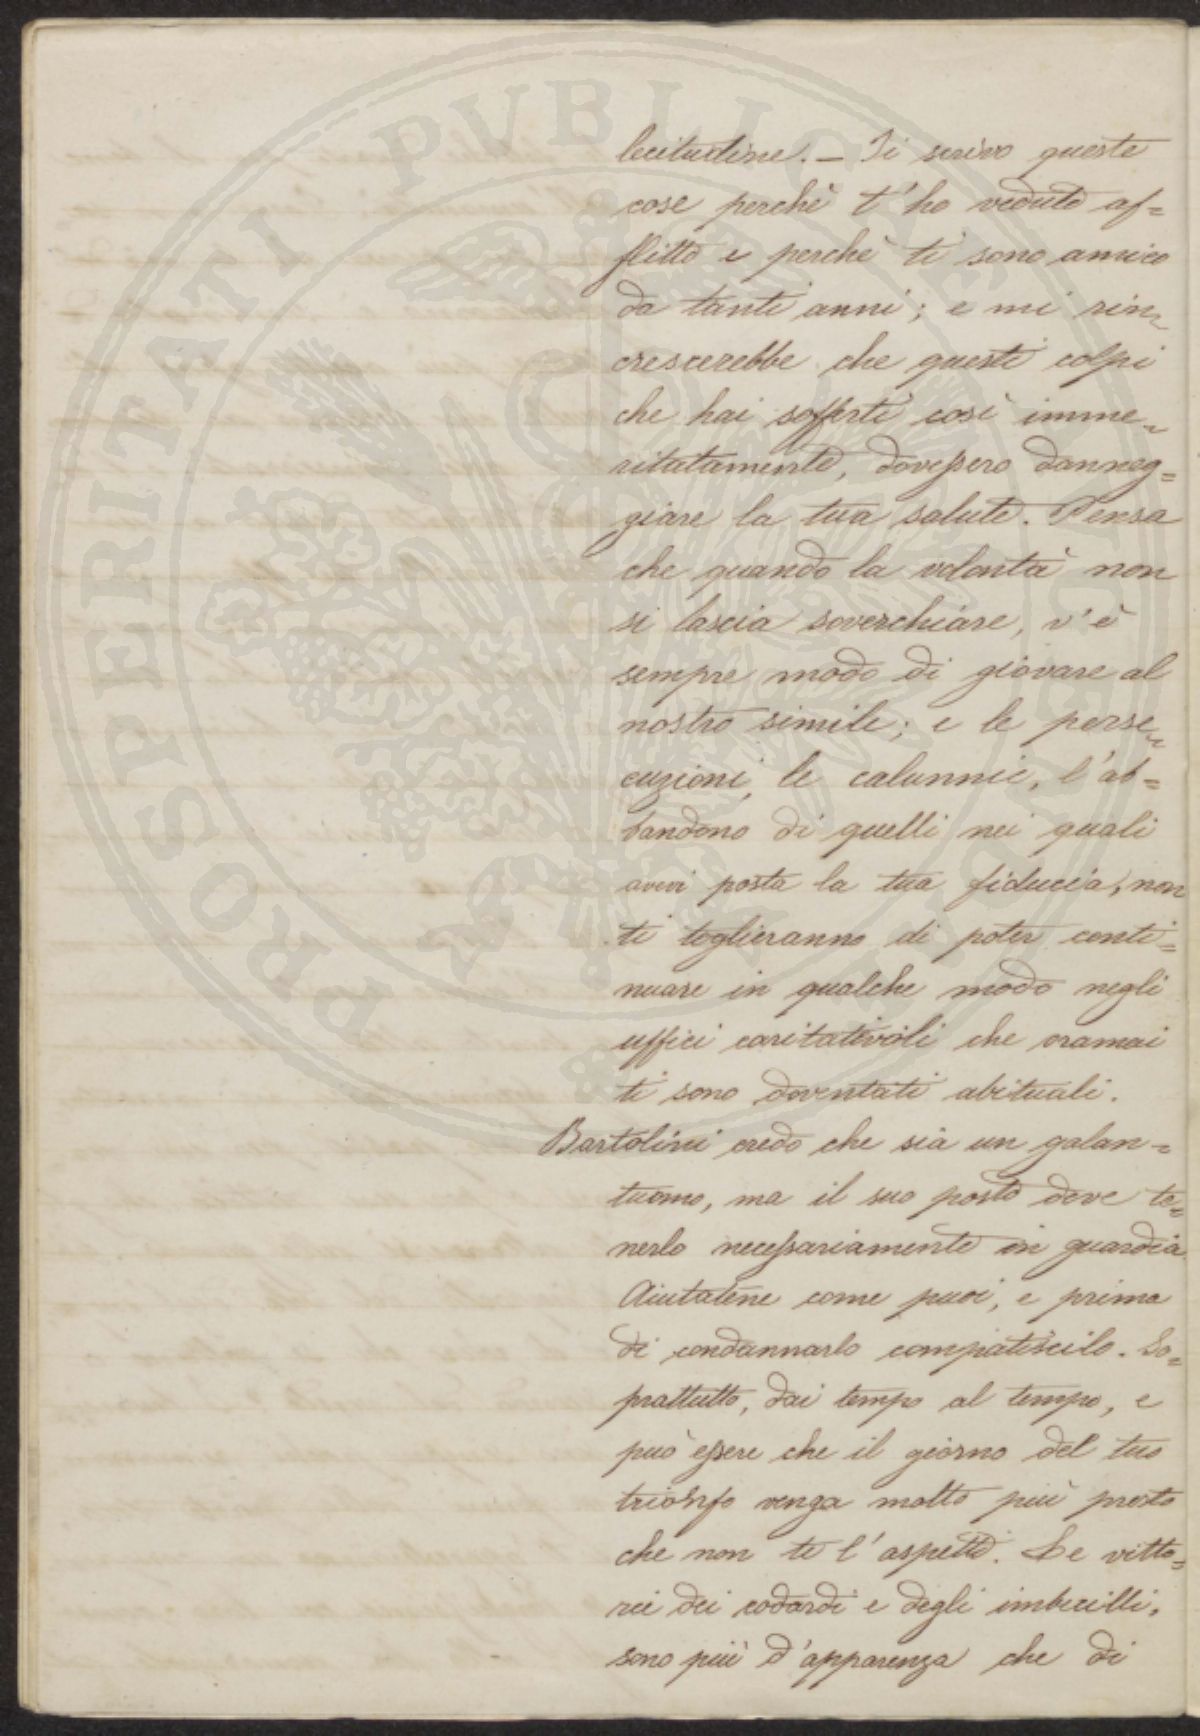 lecitudine. — Ti scrivo queste
cose perchè t'ho veduto af=
flitto e perchè ti sono amico
da tanti anni; e mi rin=
crescerebbe che questi colpi
che hai sofferti così imme=
ritatamente, dovessero danneg=
giare la tua salute. Pensa
che quando la volontà non
si lascia soverchiare, v'è
sempre modo di giovare al
nostro simile; e le perse=
cuzioni, le calunnie, l'ab=
bandono di quelli nei quali
avevi posta la tua fiducia, non
ti toglieranno di poter conti=
nuare in qualche modo negli
uffici caritatevoli che oramai
ti sono doventati abituali.
Bartolini credo che sia un galan=
tuomo, ma il suo posto deve te=
nerlo necessariamente in guardia
Aiutatene come puoi, e prima
di condannarlo compatiscilo. So=
prattutto, dai tempo al tempo, e
può essere che il giorno del tuo
trionfo venga molto più presto
che non te l'aspetti. Le vitto=
rie dei codardi e degli imbecilli,
sono più d'apparenza che di
PROSPERITATI PUBLICAE